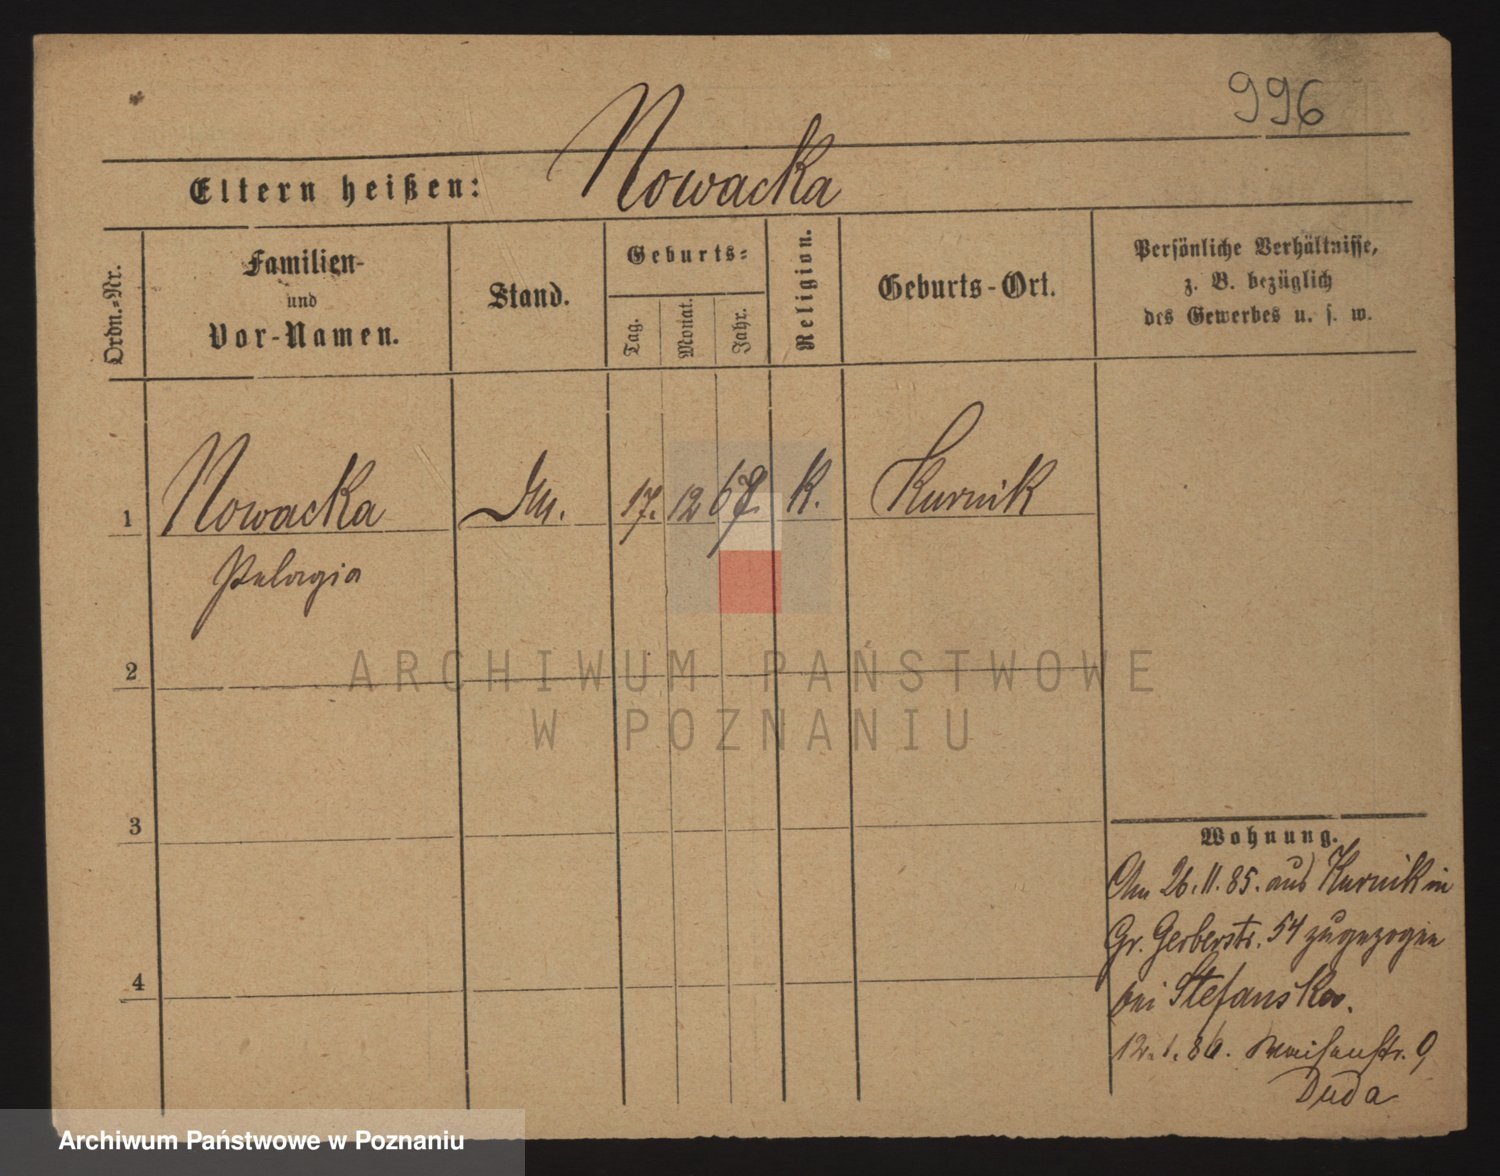 996
Eltern heißen: Nowacka
Ordn.-Nr.
Familien-
und
Vor-Namen.
Stand.
Geburts-
Tag.
Monat.
Jahr.
Religion.
Geburts-Ort.
Persönliche Verhältnisse,
z. B. bezüglich
des Gewerbes u. s. w.
1 Nowacka 17. 12 67. k. Kurnik
Pelagia
2
ARCHIWUM PAŃSTWOWE
W POZNANIU
3
Wohnung.
Am 26.11.85. aus Kurnik in
Gr. Gerberstr. 54 zugezogen
bei Stefanska.
4
12.1.86. Waisenstr. 9
Duda
Archiwum Państwowe w Poznaniu